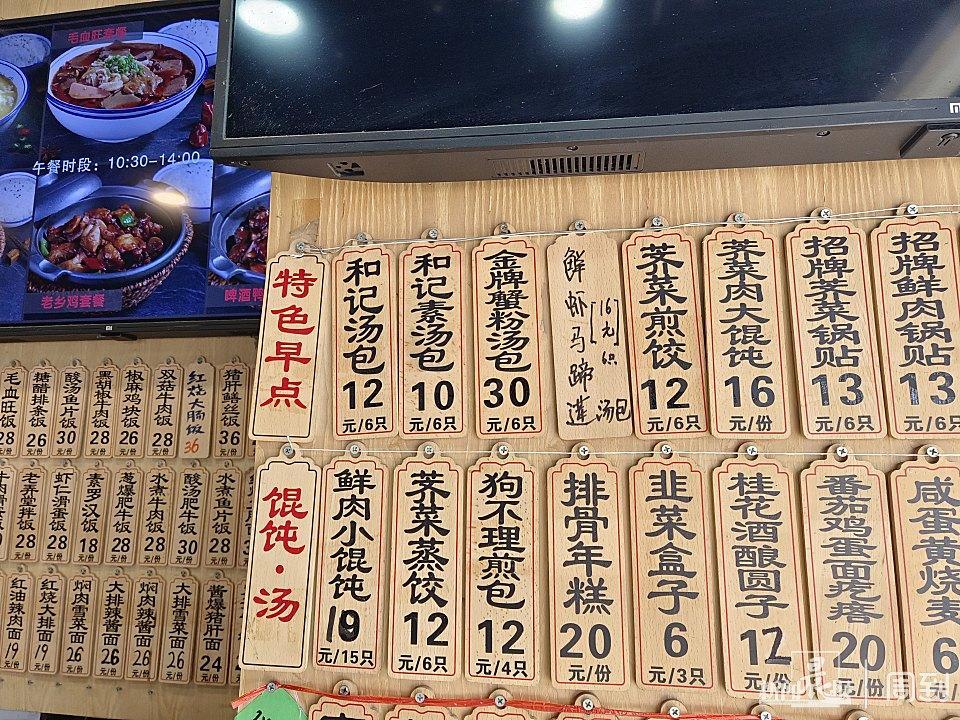 毛血旺套餐
午餐时段：10:30-14:00
老乡鸡套餐
啤酒鸭
特色早点
和记汤包 12 元/6只
和记素汤包 10 元/6只
金牌蟹粉汤包 30 元/6只
鲜虾马蹄莲汤包 16元/6只
荠菜煎饺 12 元/6只
荠菜肉大馄饨 16 元/份
招牌荠菜锅贴 13 元/6只
招牌鲜肉锅贴 13 元/6只
馄饨·汤
鲜肉小馄饨 19 元/15只
荠菜蒸饺 12 元/6只
狗不理煎包 12 元/4只
排骨年糕 20 元/份
韭菜盒子 6 元/3只
桂花酒酿圆子 12 元/份
番茄鸡蛋面疙瘩 20 元/份
咸蛋黄烧麦 6
毛血旺饭 28 元/份
糖醋排条饭 26 元/份
酸汤鱼片饭 30 元/份
黑胡椒牛肉饭 28 元/份
椒麻鸡块饭 26 元/份
双菇牛肉饭 28 元/份
红烧大肠饭 36
猪肝鳝丝饭 36 元/份
老养堂拌饭 28 元/份
虾仁滑蛋饭 28 元/份
素罗汉饭 18 元/份
葱爆肥牛饭 28 元/份
水煮肉片饭 28 元/份
酸汤肥牛饭 30 元/份
水煮鱼片饭 28 元/份
红油辣肉面 19 元/份
红烧大排面 19 元/份
焖肉雪菜面 26 元/份
大排辣酱面 26 元/份
焖肉辣酱面 26 元/份
大排雪菜面 26 元/份
酱爆猪肝面 24 元/份
周到